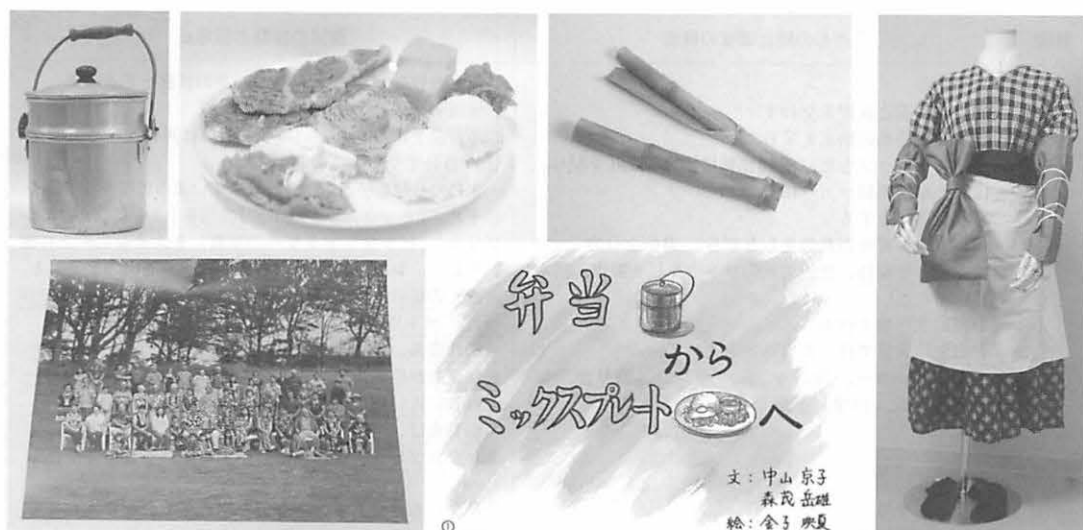 弁当
から
ミックスプレートへ
文：中山 京子
森茂 岳雄
絵：金子 映夏
①